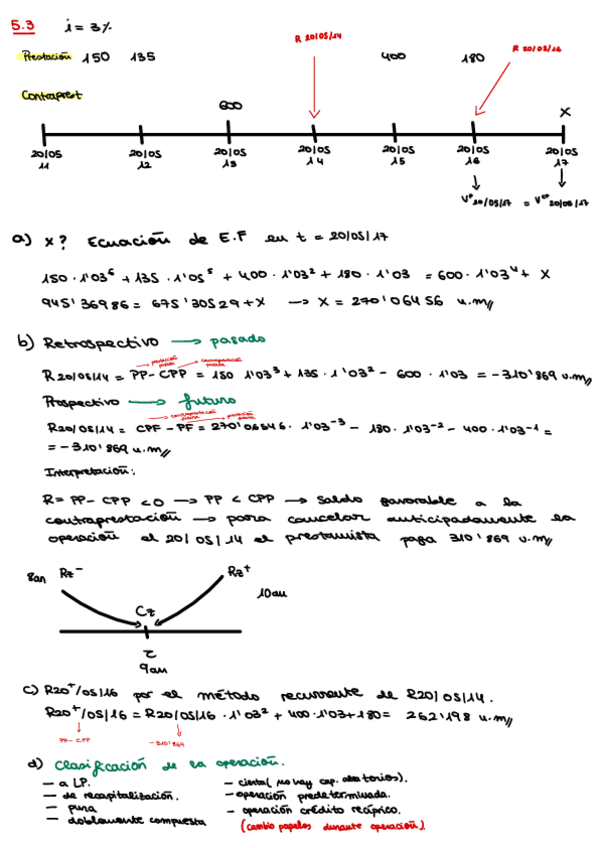 5.3 i = 3%
R 20/05/14
R 20/05/16
Prestación 150 135 400 180
Contraprest
600 X
20/05 11 20/05 12 20/05 13 20/05 14 20/05 15 20/05 16 20/05 17
Vᴾ 20/05/17 = Vᶜᴾ 20/05/17
a) x? Ecuación de E.F en t = 20/05/17
150 · 1'03⁶ + 135 · 1'05⁵ + 400 · 1'03² + 180 · 1'03 = 600 · 1'03⁴ + X
945'36986 = 675'30529 + X → X = 270'06456 u.m//
b) Retrospectivo → pasado
prestación pasada contraprestación pasada
R 20/05/14 = PP - CPP = 150 1'03³ + 135 · 1'03² - 600 · 1'03 = -310'869 u.m//
Prospectivo → futuro
contraprestación futura prestación futura
R20/05/14 = CPF - PF = 270'06546 · 1'03⁻³ - 180 · 1'03⁻² - 400 · 1'03⁻¹ =
= -310'869 u.m//
Interpretación:
R = PP - CPP < 0 → PP < CPP → Saldo favorable a la
contraprestación → para cancelar anticipadamente la
operación el 20/05/14 el prestamista paga 310'869 u.m//
8am Rz⁻ Rz⁺
10am
Cz
τ
9am
c) R20⁺/05/16 por el método recurrente de R20/05/14.
R20⁺/05/16 = R20/05/16 · 1'03² + 400 · 1'03 + 180 = 262'198 u.m//
PP - CPP -310'869
d) Clasificación de la operación.
- a LP. - cierta (no hay cap. aleatorios).
- de recapitalización. - operación predeterminada.
- pura - operación crédito recíproco.
- doblemente compuesta (cambio papeles durante operación).